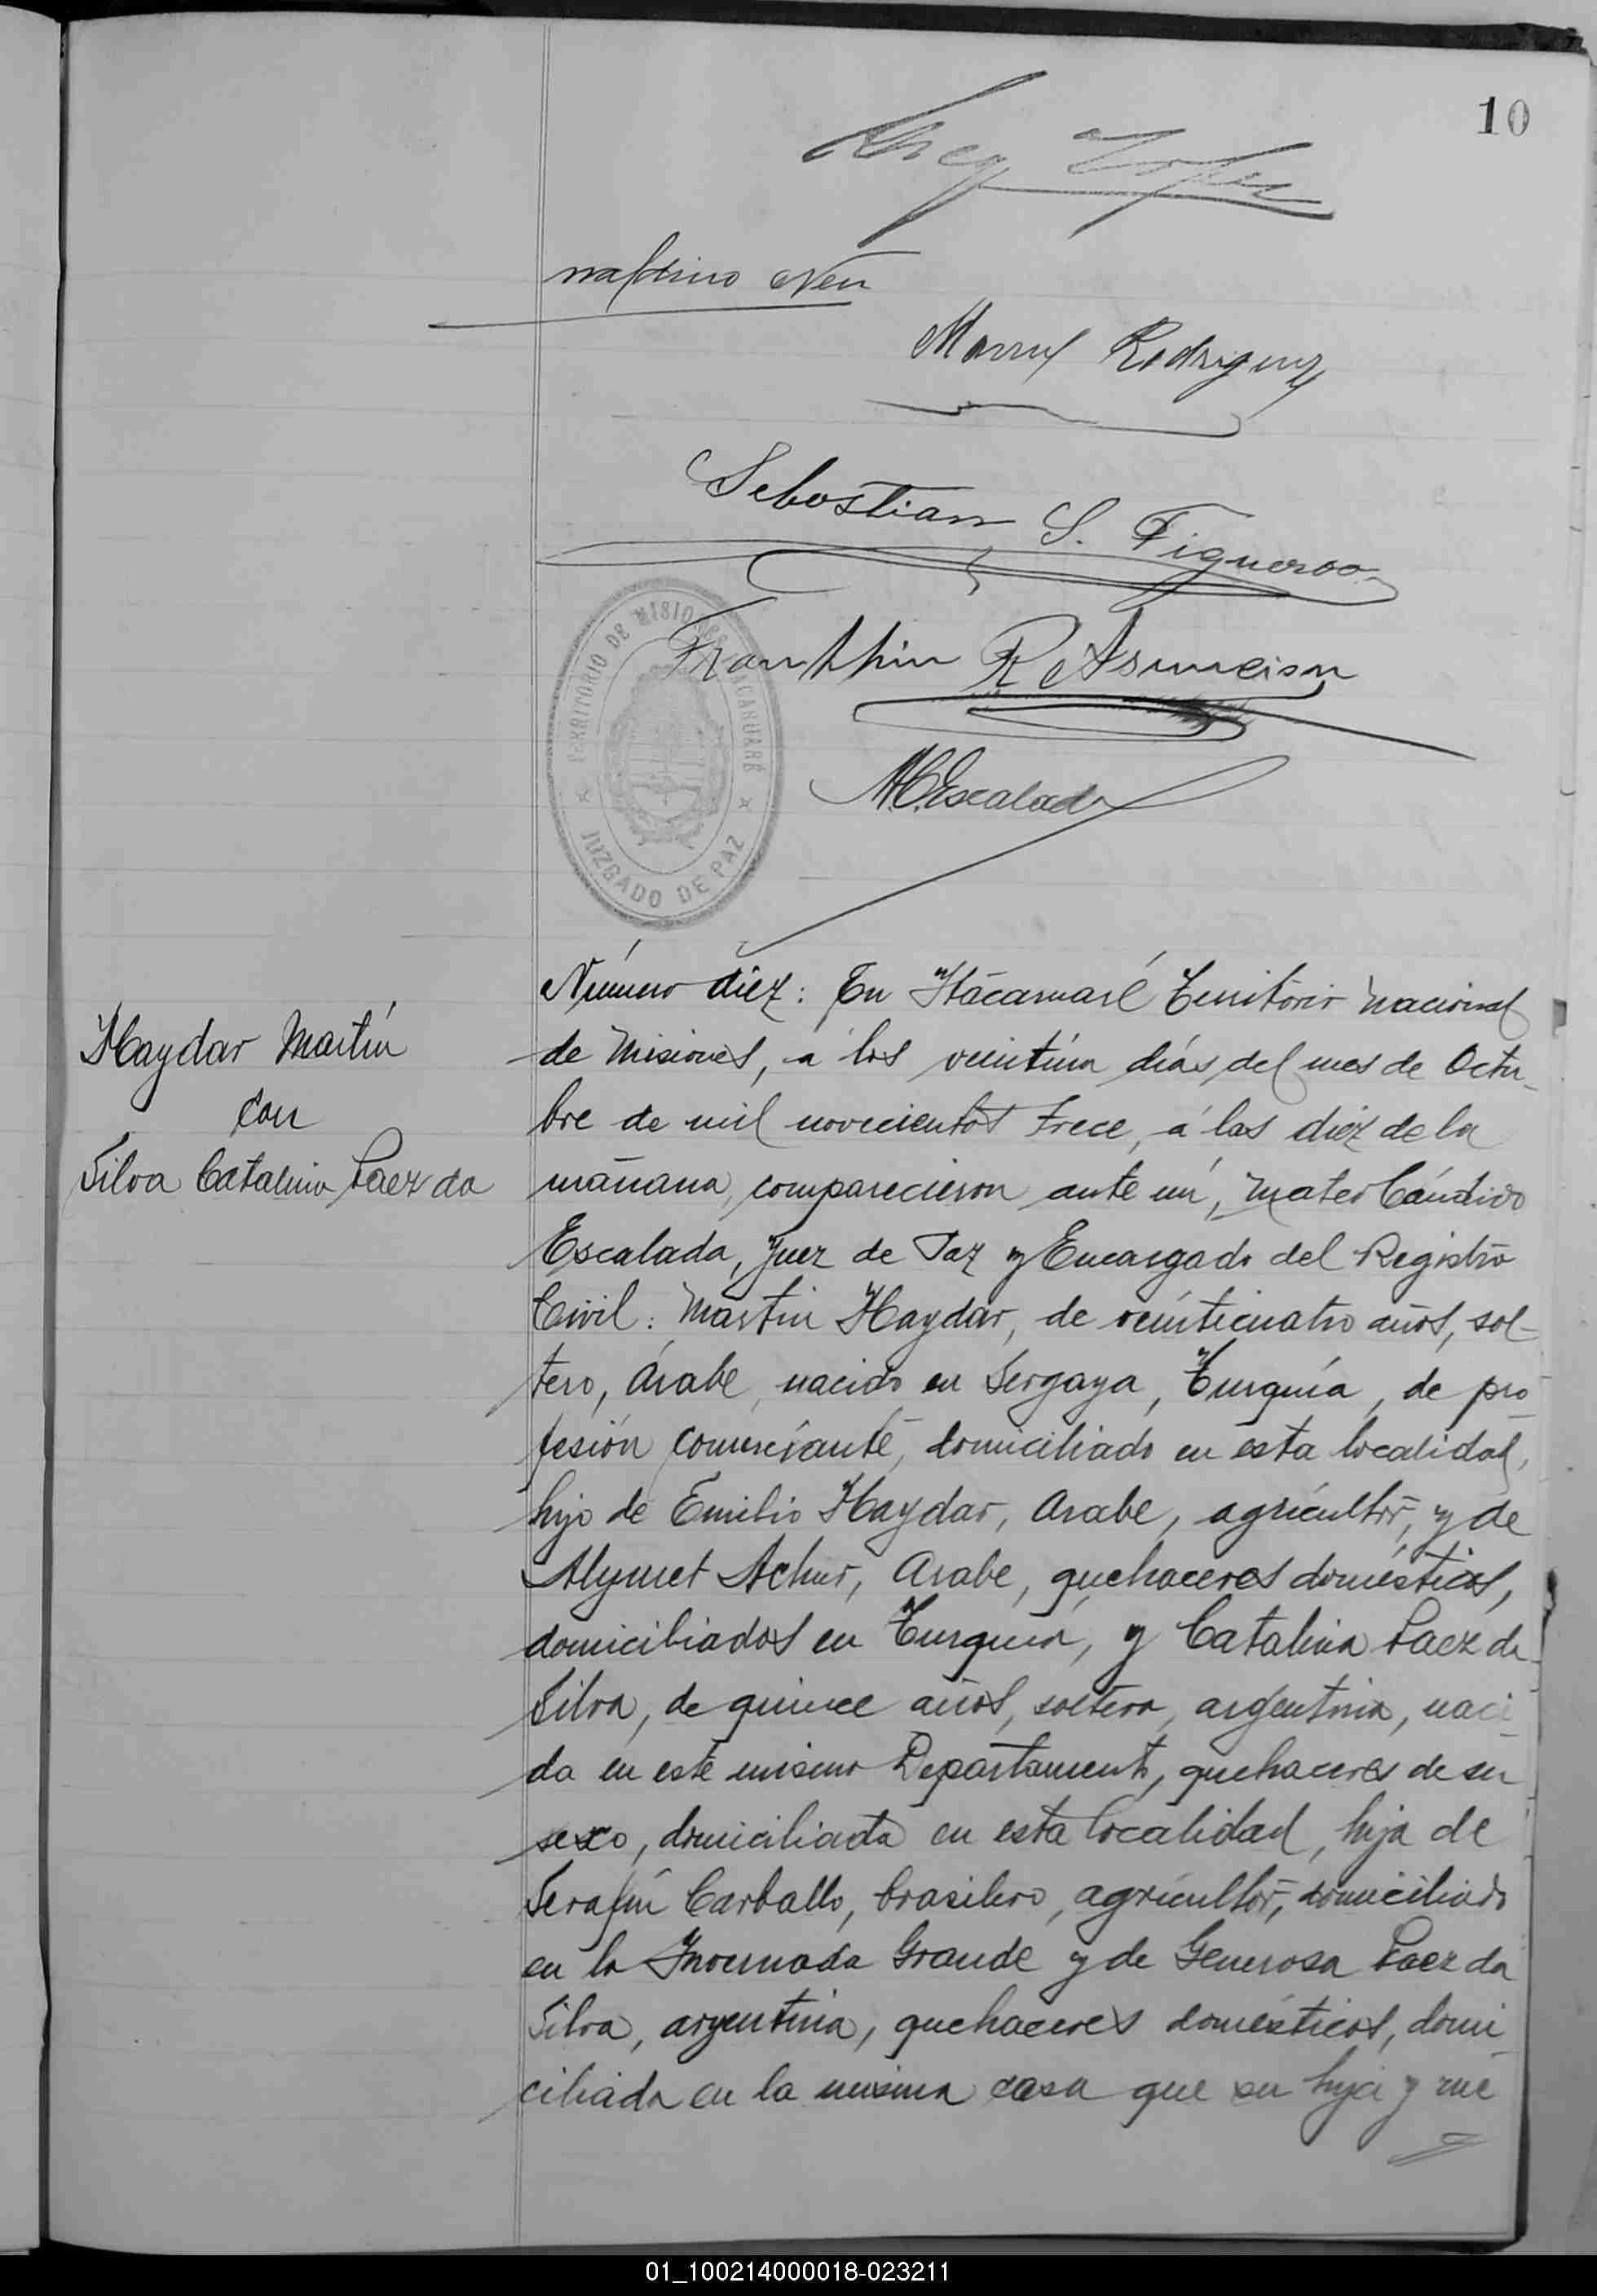 10
Manuel Rodriguez
Sebastian S. Figueroa
Franklin R. Asunción
M. C. Escalada
TERRITORIO DE MISIONES
ITACARUARÉ
JUZGADO DE PAZ
Haydar Martín
con
Silva Catalina Paez da
Número diez: En Itacaruaré Territorio Nacional
de Misiones, a los veintiun días del mes de Octu-
bre de mil novecientos trece, á las diez de la
mañana, comparecieron ante mí, Mateo Cándido
Escalada, Juez de Paz y Encargado del Registro
Civil: Martin Haydar, de veinticuatro años, sol-
tero, Árabe, nacido en Sergaya, Turquía, de pro-
fesión comerciante, domiciliado en esta localidad,
hijo de Emilio Haydar, Arabe, agricultor, y de
Alymet Achur, Arabe, quehaceres domésticos,
domiciliados en Turquia, y Catalina Paez da
Silva, de quince años, soltera, argentina, naci-
da en este mismo Departamento, quehaceres de su
sexo, domiciliada en esta localidad, hija de
Serafín Carballo, brasilero, agricultor, domiciliado
en la Invernada Grande y de Generosa Paez da
Silva, argentina, quehaceres domésticos, domi-
ciliada en la misma casa que su hija y me
01_100214000018-023211